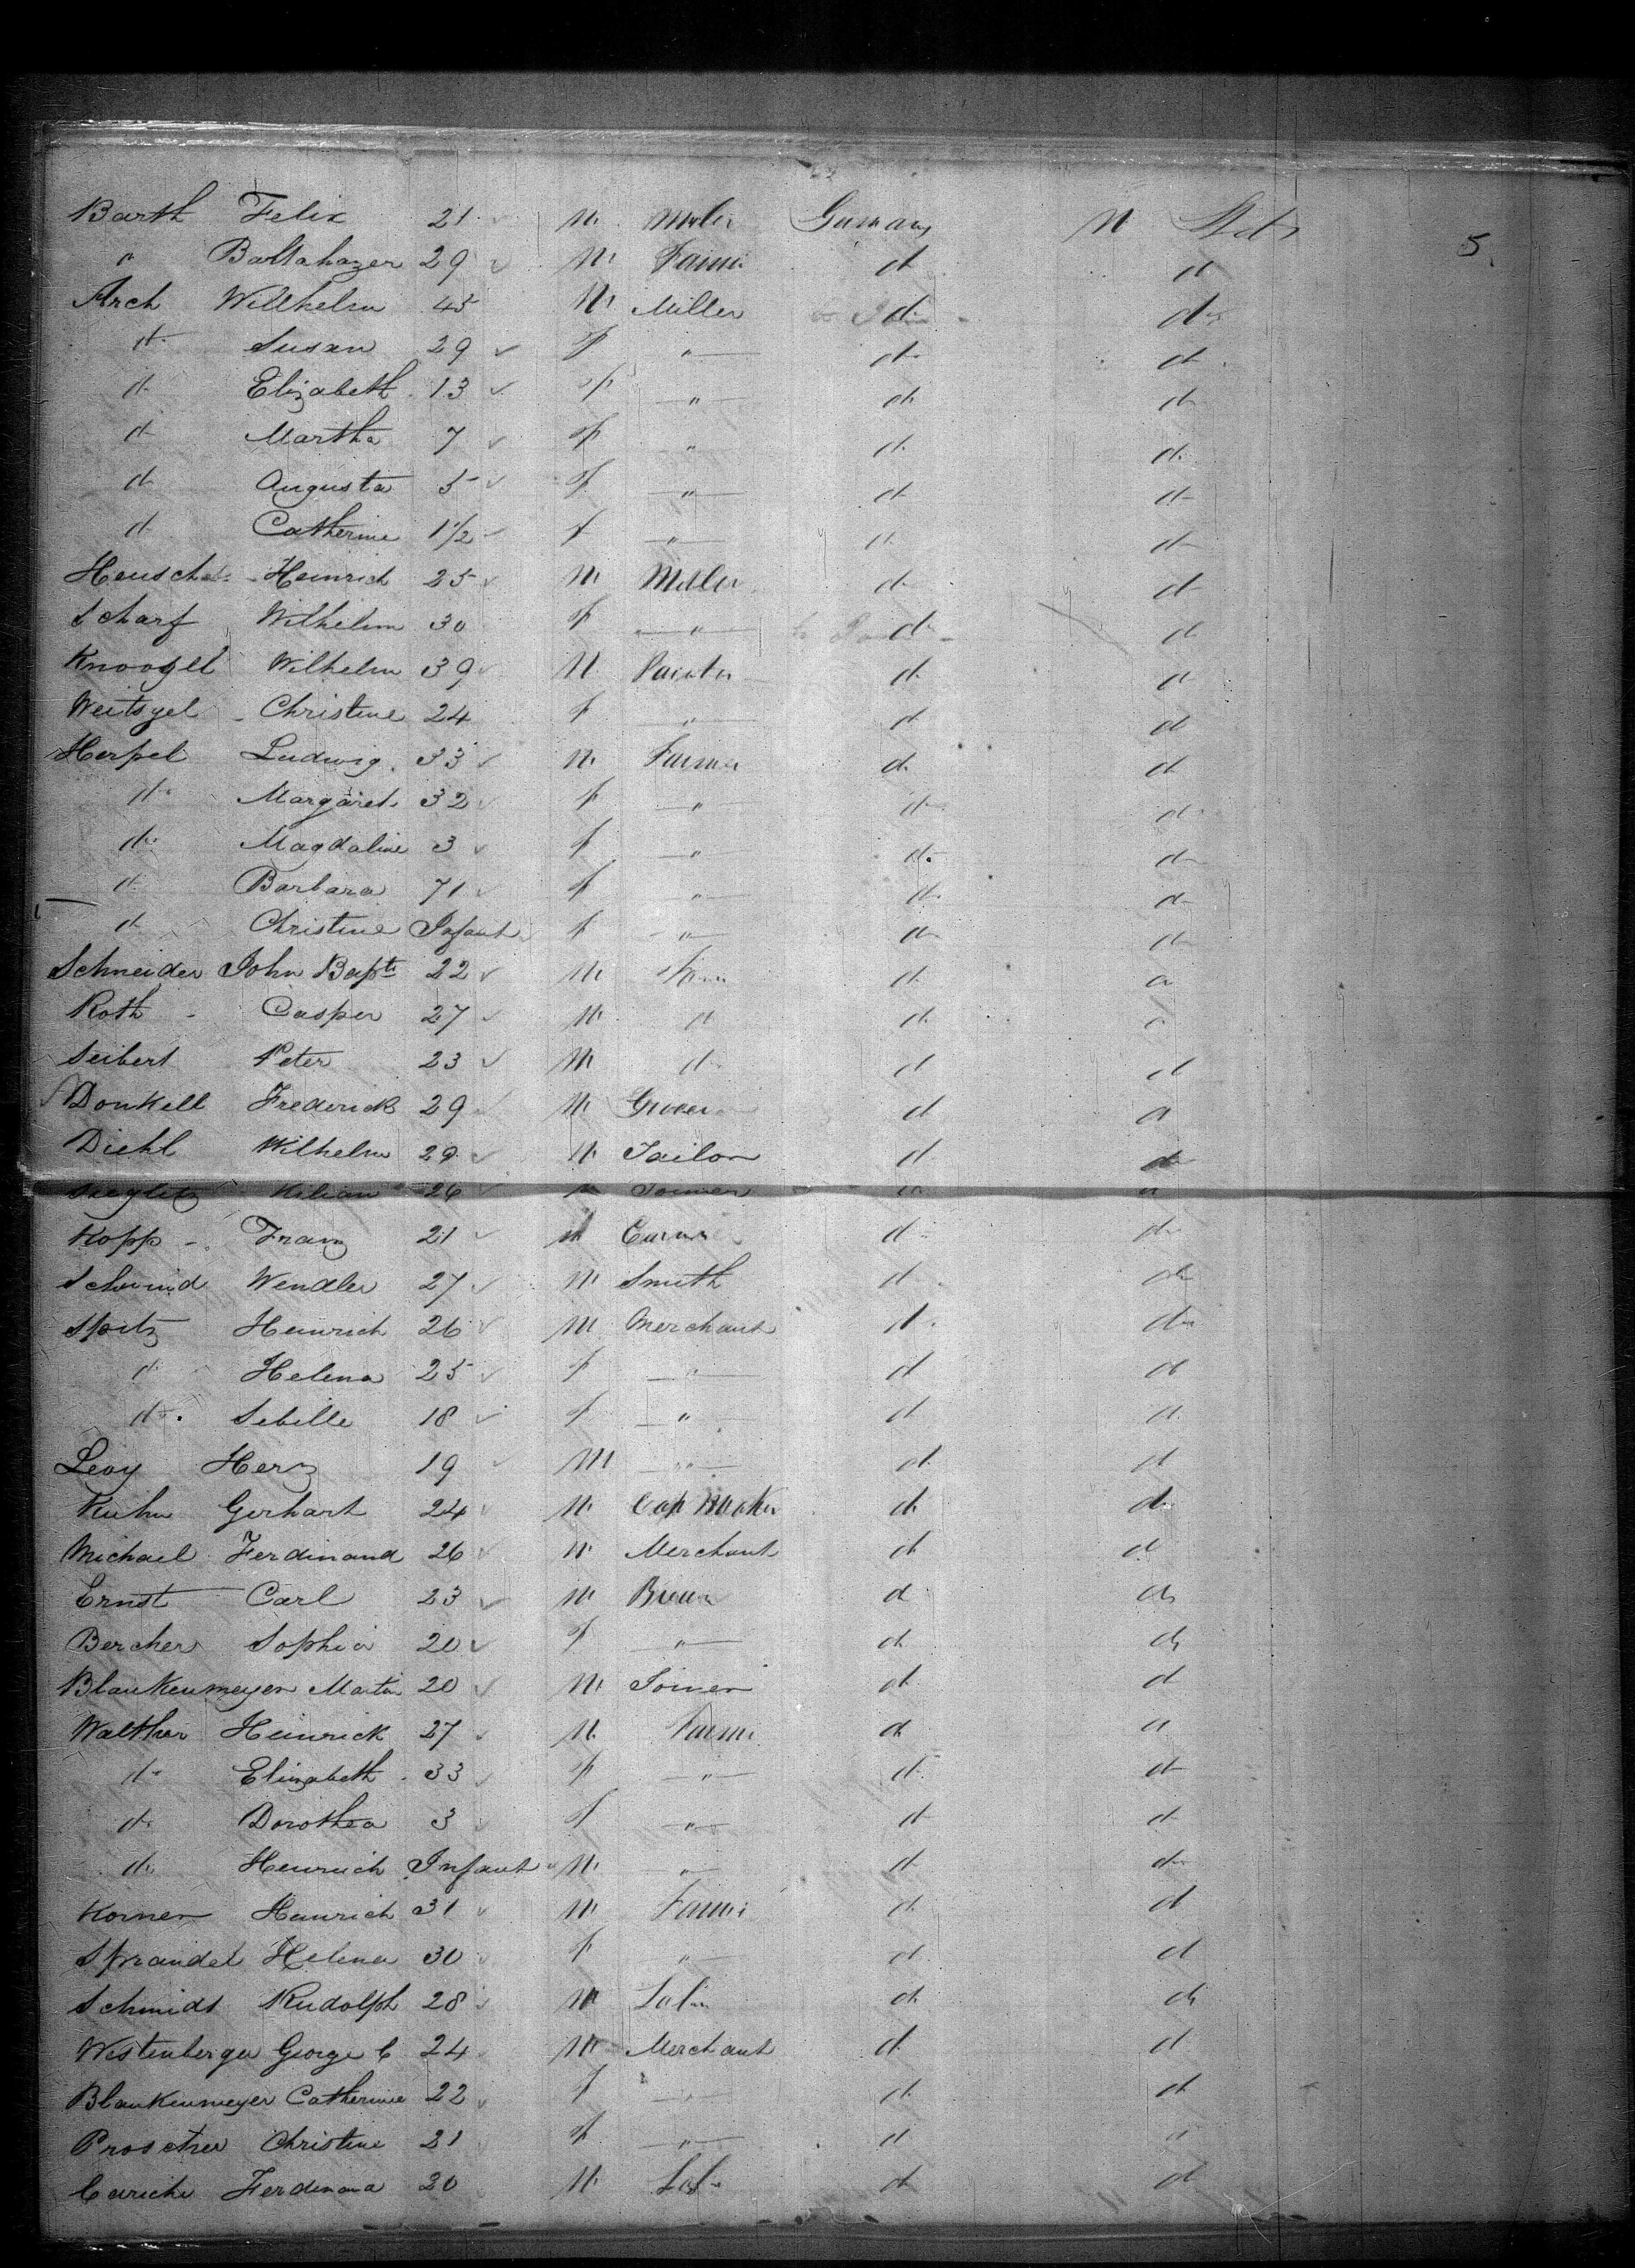 Barth Felix 21 M Miller Germany U Sts
" Baltahazer 29 M Farmer d d 5.
Arch Willhelm 45 M Miller d d
d Susan 29 F " d d
d Elizabeth 13 F " d d
d Martha 7 F " d d
d Augusta 5 F " d d
d Catherine 1½ F " d d
Heinrich 25 M Miller d d
Scharf Wilhelm 30 F " d d
Wilhelm 39 M d d
Christine 24 F " d d
Herpel Ludwig 33 M Farmer d d
d Margaret 32 F " d d
d Magdaline 3 F " d d
d Barbara 71 F " d d
d Christine Infant F " d d
Schneider John Bapt 22 M d d
Roth Casper 27 M d d d
Seibert Peter 23 M d d d
Donkell Frederick 29 M Grocer d d
Diehl Wilhelm 29 M Tailor d d
Sieglitz Kilian 26 M Joiner d d
Kopp Franz 21 M d d
Schwind Wendler 27 M Smith d d
Spitz Heinrich 26 M Merchant d d
d Helena 25 F " d d
d Sebille 18 F " d d
Levy Herz 19 M " d d
Kuhn Gerhart 24 M Cap Maker d d
Michael Ferdinand 26 M Merchant d d
Ernst Carl 23 M d d
Bercher Sophia 20 F " d d
Blankenmeyer Martin 20 M Joiner d d
Walther Heinrick 27 M Farmer d d
d Elizabeth 33 F " d d
d Dorothea 3 F " d d
d Heinrich Infant M " d d
Korner Heinrich 31 M Farmer d d
Sprandel Helena 30 F " d d
Schmidt Rudolph 28 M d d
Westenberger George C 24 M Merchant d d
Blankenmeyer Catherine 22 F " d d
Proscher Christine 21 F " d d
Ferdinand 20 M d d